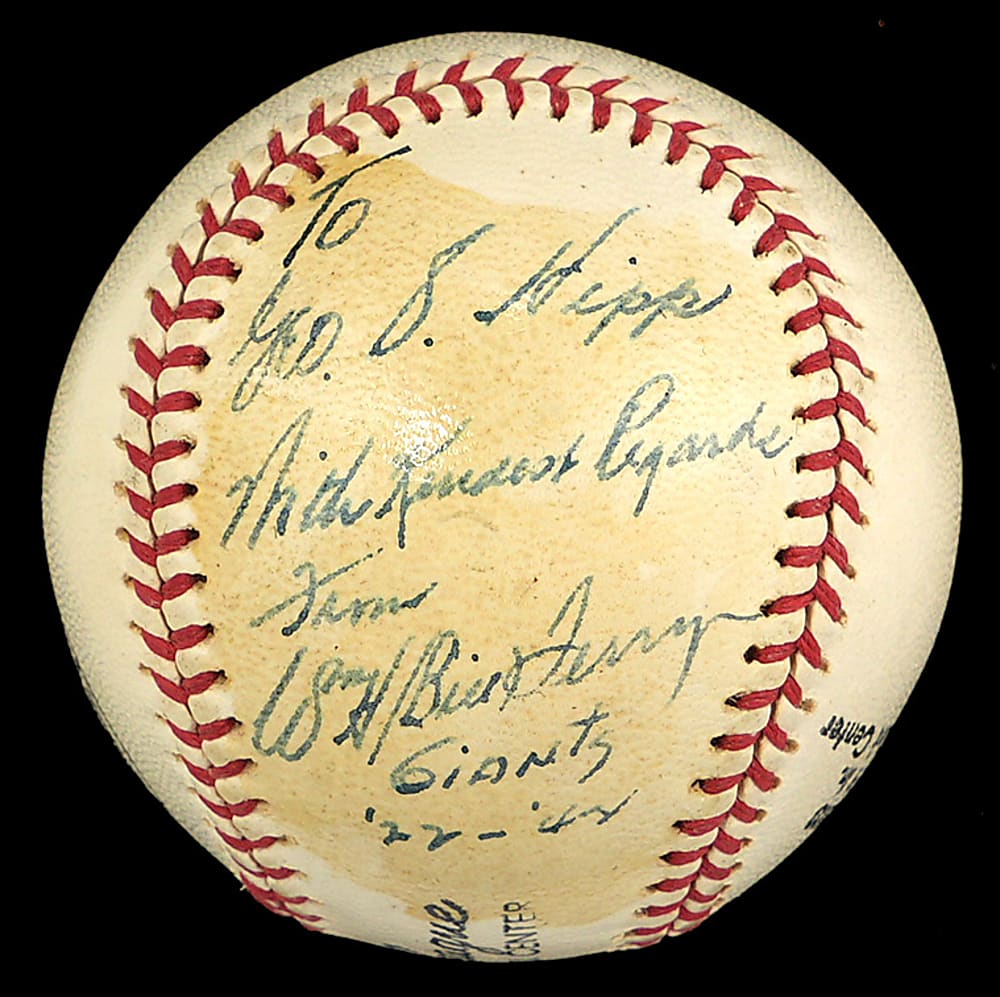 To
Geo. S. Hipp
With Kindest Regards
From
Wm H "Bill" Terry
GIANTS
'22 - '42
Center
CENTER